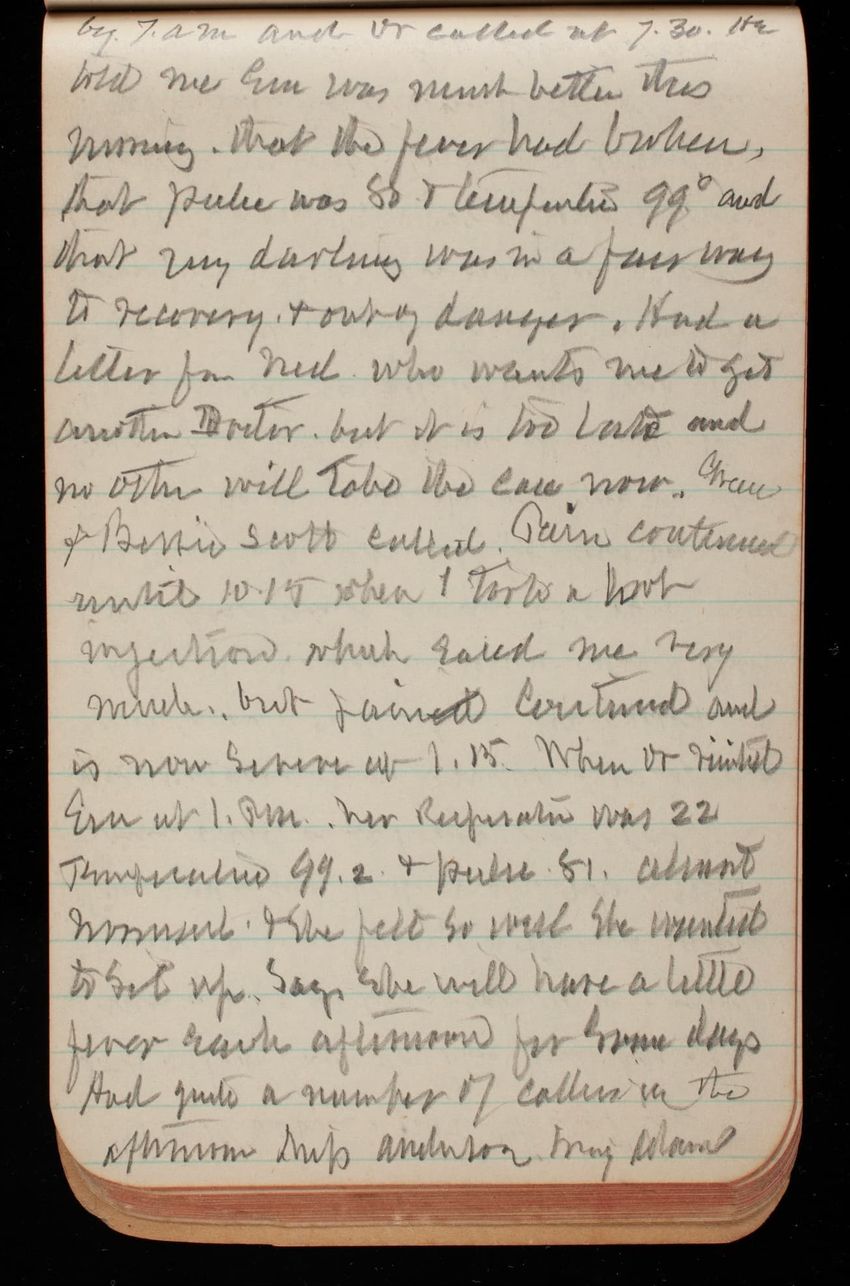 by 7. a m and Dr called at 7.30. He
told me Em was much better this
morning. that the fever had broken,
that pulse was 80 & temperature 99° and
that my darling was in a fair way
to recovery. & out of danger. Had a
letter from Ned who wants me to get
another Doctor. but it is too late and
no other will take the case now.
& Bessie Scott called. Pain continued
until 10.15 when I took a hot
injection. which eased me very
much., but pained continued and
is now severe at 1.15. When Dr visited
Em at 1. P.M. her Resperation was 22
Temperature 99.2 & pulse 81. almost
normal. & she felt so well she wanted
to set up. Says she will have a little
fever each afternoon for some days
Had quite a number of callers in the
afternoon anderson